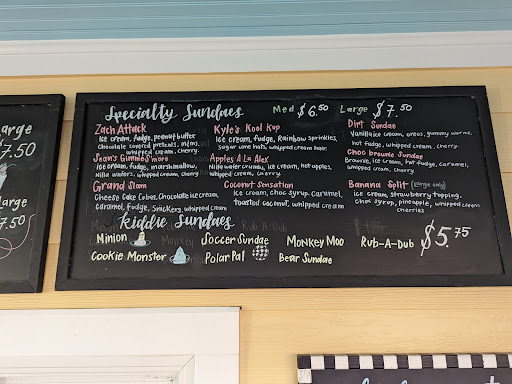 Large
7.50
Large
7.50
Specialty Sundaes Med $6.50 Large $7.50
Zach Attack
Ice cream, fudge, peanut butter
Chocolate covered pretzels, m&ms,
whipped cream, cherry
Sean's Gimmie S'more
Ice cream, fudge, marshmallow,
Nilla wafers, whipped cream, cherry
Grand Slam
Cheese cake cubes, Chocolate ice cream,
Caramel, fudge, Snickers, whipped cream
Kyle's Kool Kup
Ice cream, fudge, Rainbow sprinkles,
Sugar cone hats, whipped cream hair
Apples A La Alex
Nilla wafer crumbs, ice cream, hot apples,
whipped cream, cherry
Coconut Sensation
Ice cream, choc syrup, caramel,
toasted coconut, whipped cream
Dirt Sundae
Vanilla ice cream, oreos, gummy worms,
hot fudge, whipped cream, cherry
Choc Brownie Sundae
Brownie, ice cream, hot fudge, caramel,
whipped cream, cherry
Banana Split (Large only)
Ice cream, strawberry topping,
Choc syrup, pineapple, whipped cream
Cherries
Kiddie Sundaes
Minion Soccer Sundae Monkey Moo Rub-A-Dub $5.75
Cookie Monster Polar Pal Bear Sundae